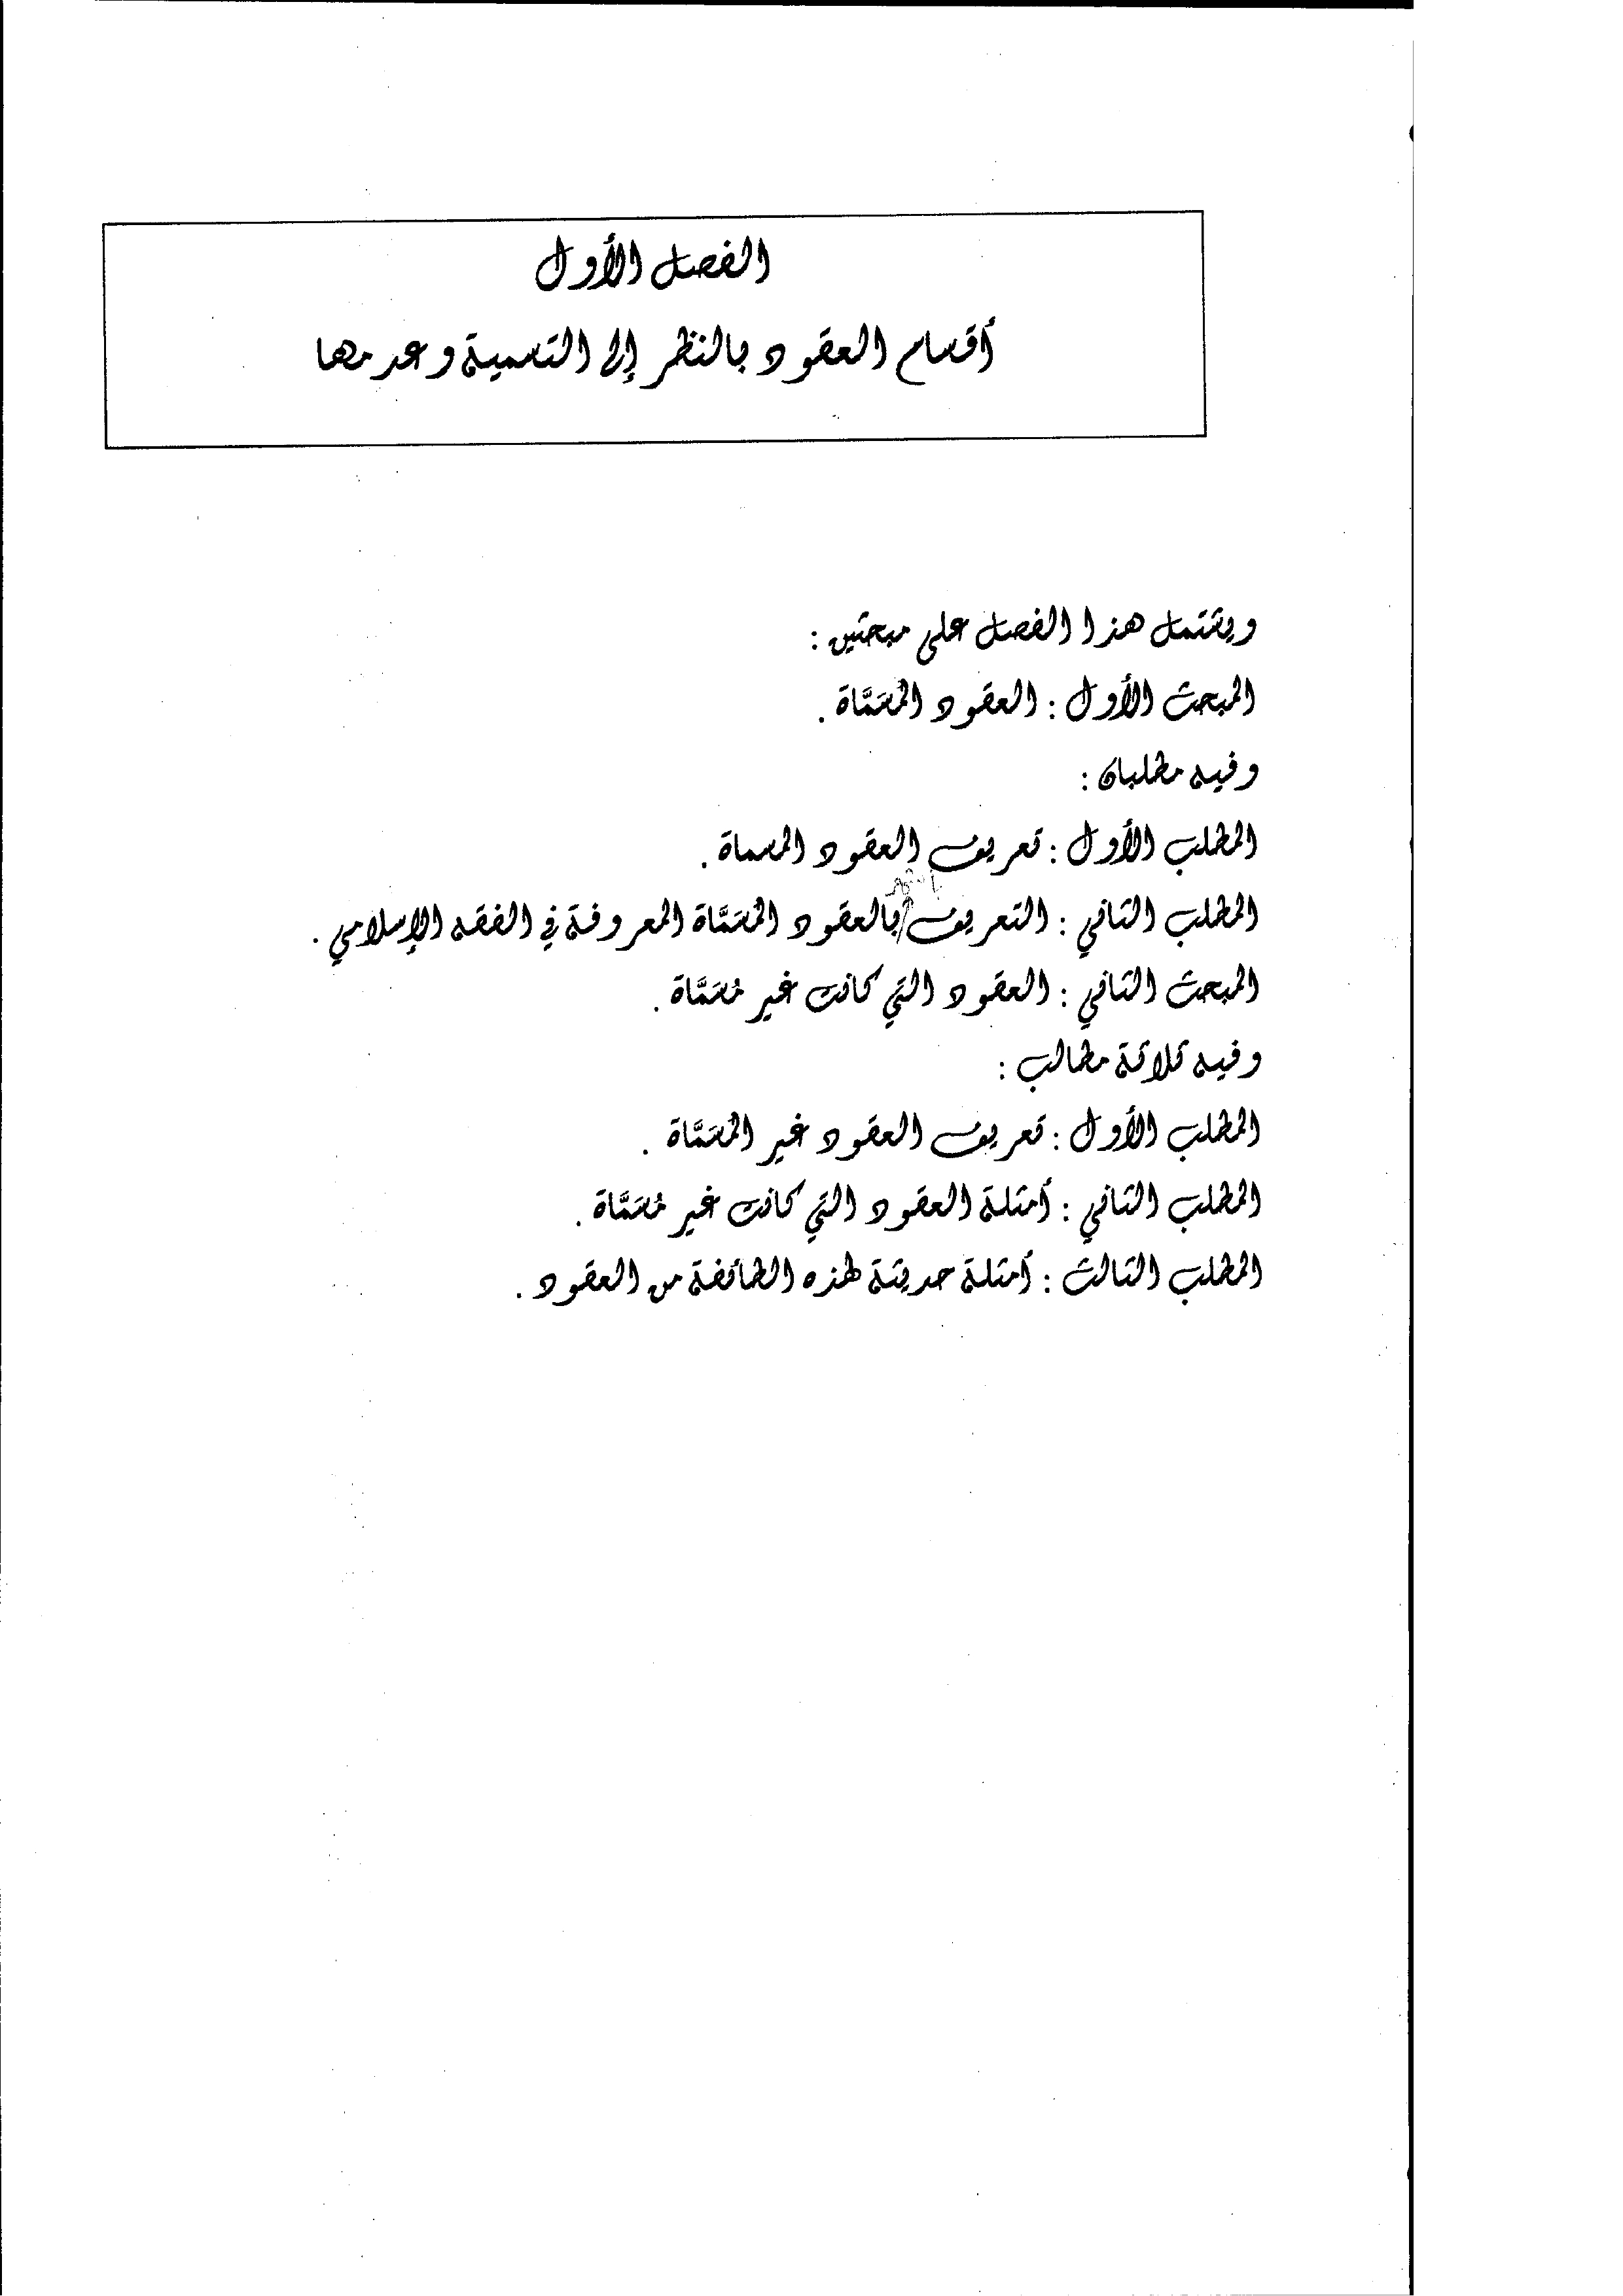 الفصل الأول
أقسام العقود بالنظر إلى التسمية وعدمها
ويشتمل هذا الفصل على مبحثين :
المبحث الأول : العقود المُسَمَّاة .
وفيه مطلبان :
المطلب الأول : تعريف العقود المسماة .
المطلب الثاني : التعريف بالعقود المُسَمَّاة المعروفة في الفقه الإسلامي .
المبحث الثاني : العقود التي كانت غير مُسَمَّاة .
وفيه ثلاثة مطالب :
المطلب الأول : تعريف العقود غير المُسَمَّاة .
المطلب الثاني : أمثلة العقود التي كانت غير مُسَمَّاة .
المطلب الثالث : أمثلة حديثة لهذه الطائفة من العقود .